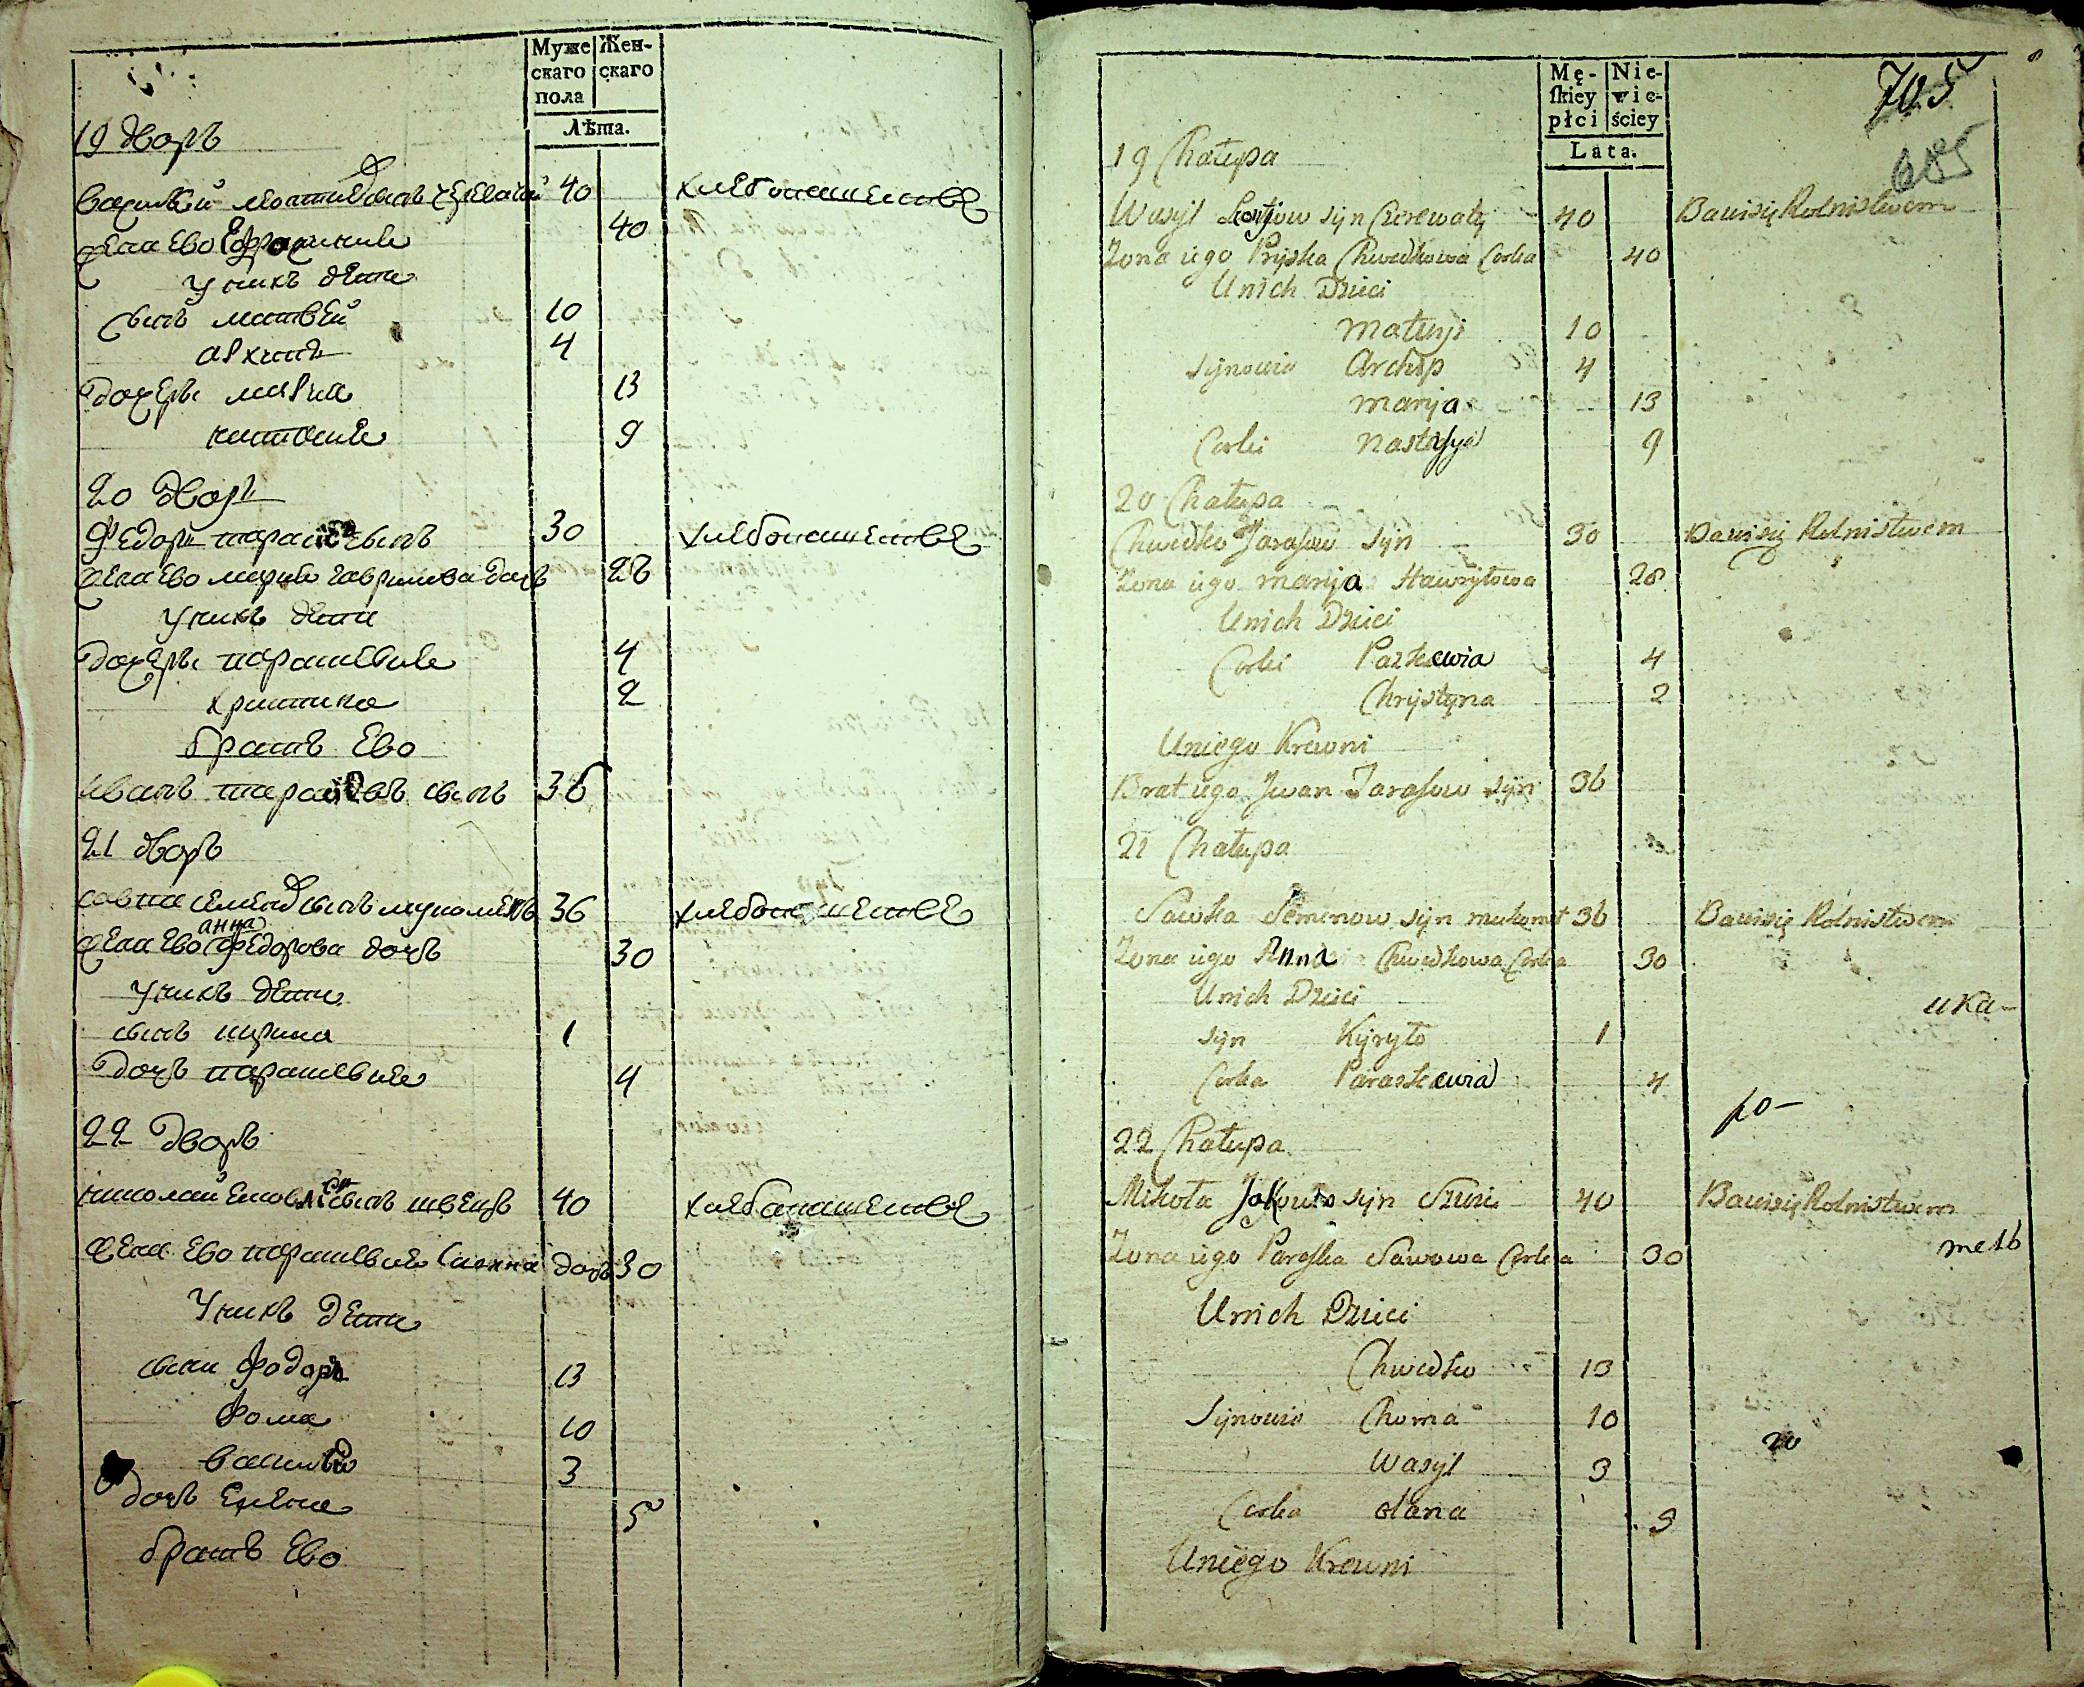 Муже
скаго
пола
Жен-
скаго
Лѣта.
19 дворъ
40 хлебопашествѣ
жена ево Ефросиния 40
у нихъ дети
сынъ матвей 10
архипъ 4
дочерь мария 13
настасия 9
20 дворъ
Федоръ тарасовъ сынъ 30 хлебопашествѣ
жена ево мария гаврилова дочь 28
у нихъ дети
дочерь парасковия 4
христина 2
братъ ево
иванъ тарасовъ сынъ 36
21 дворъ
савка семенов сынъ 36 хлебопашествѣ
анна
жена ево федорова дочь 30
у нихъ дети
сынъ кирила 1
дочь парасковия 4
22 дворъ
николай сынъ швецъ 40 хлебопашествѣ
жена ево парасковия дочь 30
у нихъ дети
сыны федоръ 13
фома 10
василей 3
дочь елена 5
братъ ево
Mę-
skiey
płci
Nie-
wie-
ściey
Lata.
705
685
19 Chałupa
Wasyl syn Czerewaty 40 Bawi się Rolnistwem
Zona iego Pryska Chwedkowa Corka 40
Unich Dzieci
Matwji 10
Synowie Archip 4
Marija 13
Corki Nastasyja 9
20 Chałupa
Chwedko Tarasow Syn 30 Bawi się Rolnistwem
Zona iego Marija Hawryłowa 28
Unich Dzieci
Corki Paskewia 4
Chrystyna 2
Uniego Krewni
Brat iego Jwan Tarasow syn 36
21 Chałupa
Sawka Semenow syn 36 Bawi się Rolnistwem
Zona iego Anna Chwedkowa Corka 30
Unich Dzieci
ика-
syn Kyryło 1
Corka Paraskewia 4
ро-
22 Chałupa
Mikoła Jakow syn Szwec 40 Bawi się Rolnistwem
Zona iego Paraska Sawowa Corka 30
Unich Dzieci
Chwedko 13
Synowie Choma 10
Wasyl 3
Corka olana 5
Uniego Krewni